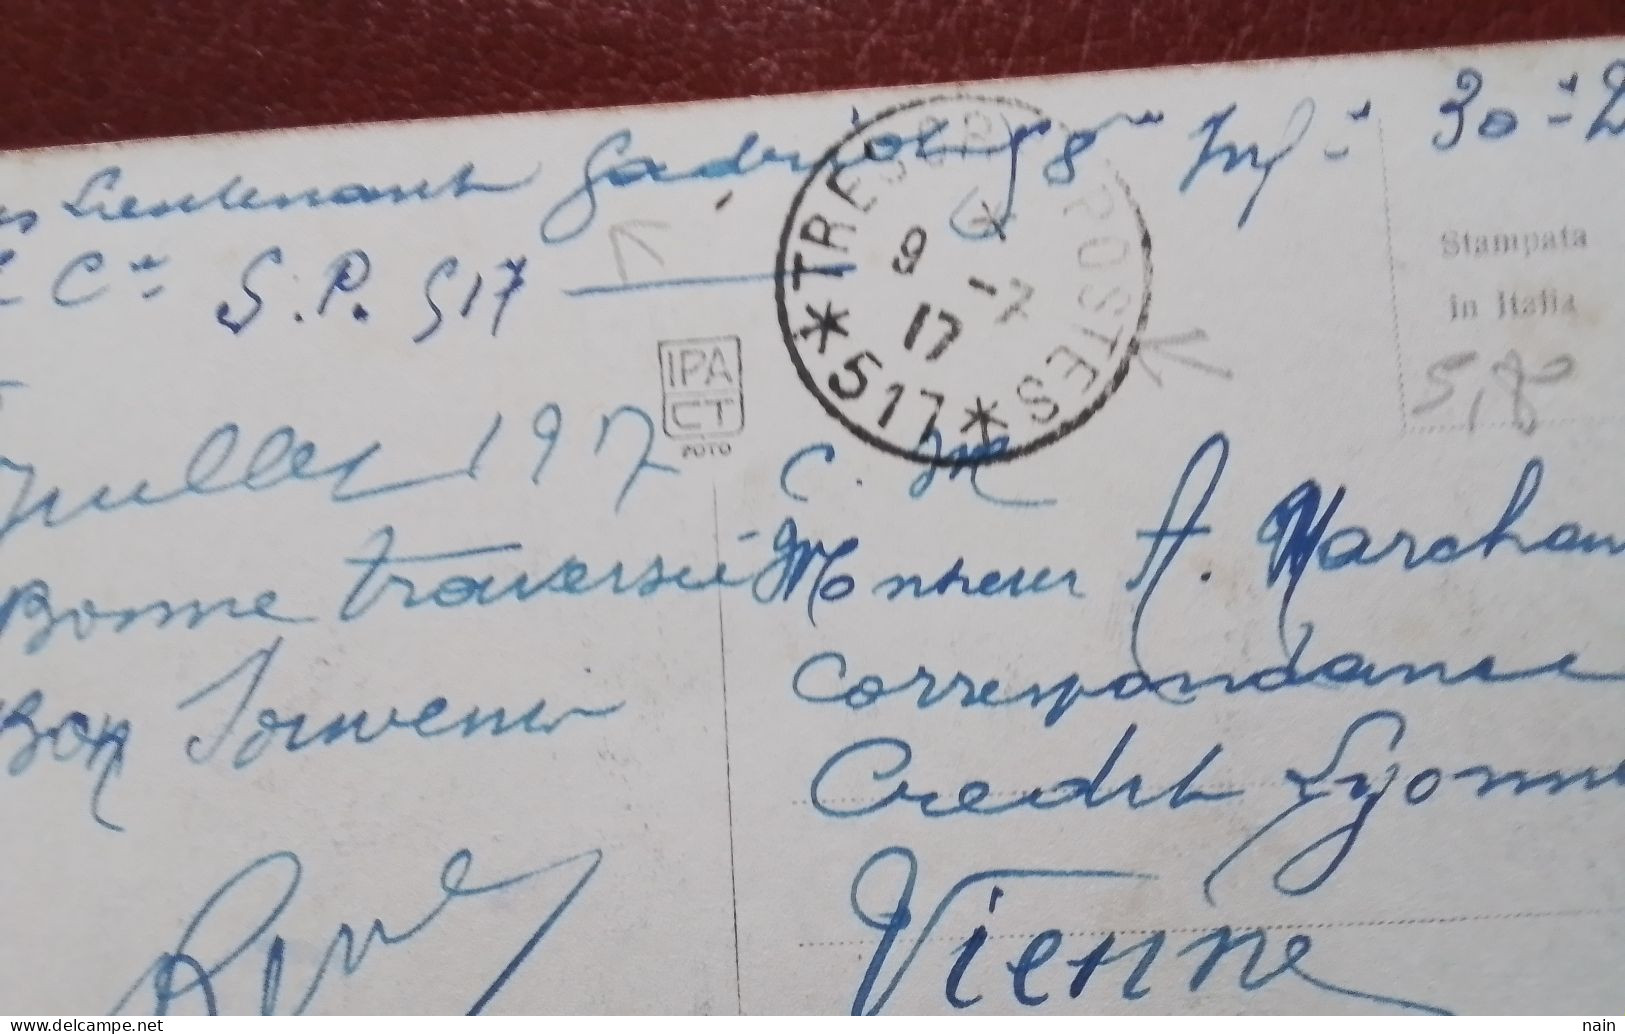 Lieutenant Gadriol 58me Inf-ie 30-e D
Cie S.P. 517
TRESOR ET POSTES
9 -7
17
*517*
Stampata
in Italia
5,80
IPA
CT
FOTO
Juillet 1917
Bonne traversée
Bon Souvenir
C. M
Monsieur A. Marchan
Correspondance
Credit Lyonn
Vienne
nain
www.delcampe.net